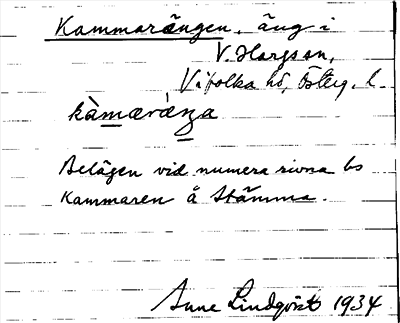 Kammarängen, äng i
V. Harg sn,
Vifolka hd, Österg. l.
kàmæræ̀ŋa
Belägen vid numera rivna bs
Kammaren å Stämma.
Arne Lindqvist 1934